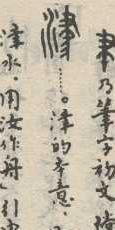 聿乃筆字初文
津……。津的本意、
津水,用汝作舟」引